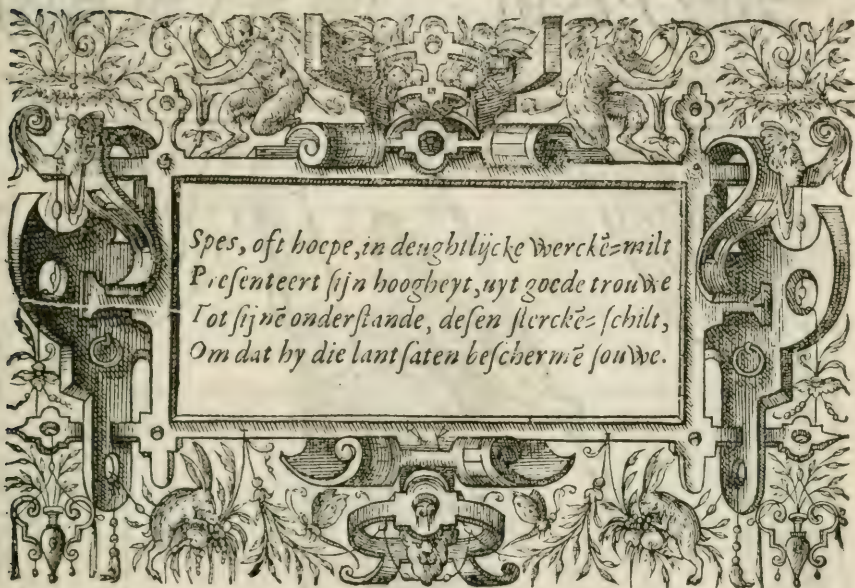 Spes, oft hoepe, in deughtlijcke werckē=milt
Presenteert sijn hoogheyt, uyt goede trouwe
Tot sijnē onderstande, desen sterckē= schilt,
Om dat hy die lantsaten beschermē souwe.